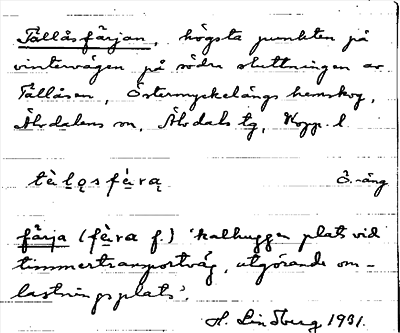 Tallåsfärjan, högsta punkten på
vintervägen på södra sluttningen av
Tållåsen, Östermyckelängs hemskog,
Älvdalens sn, Älvdals tg, Kopp. l.
tèlǫsfęra Ö.-äng
färja (fęra f.) 'kalhuggen plats vid
timmertransportväg, utgörande om-
lastningsplats'.
H. Lindberg 1931.